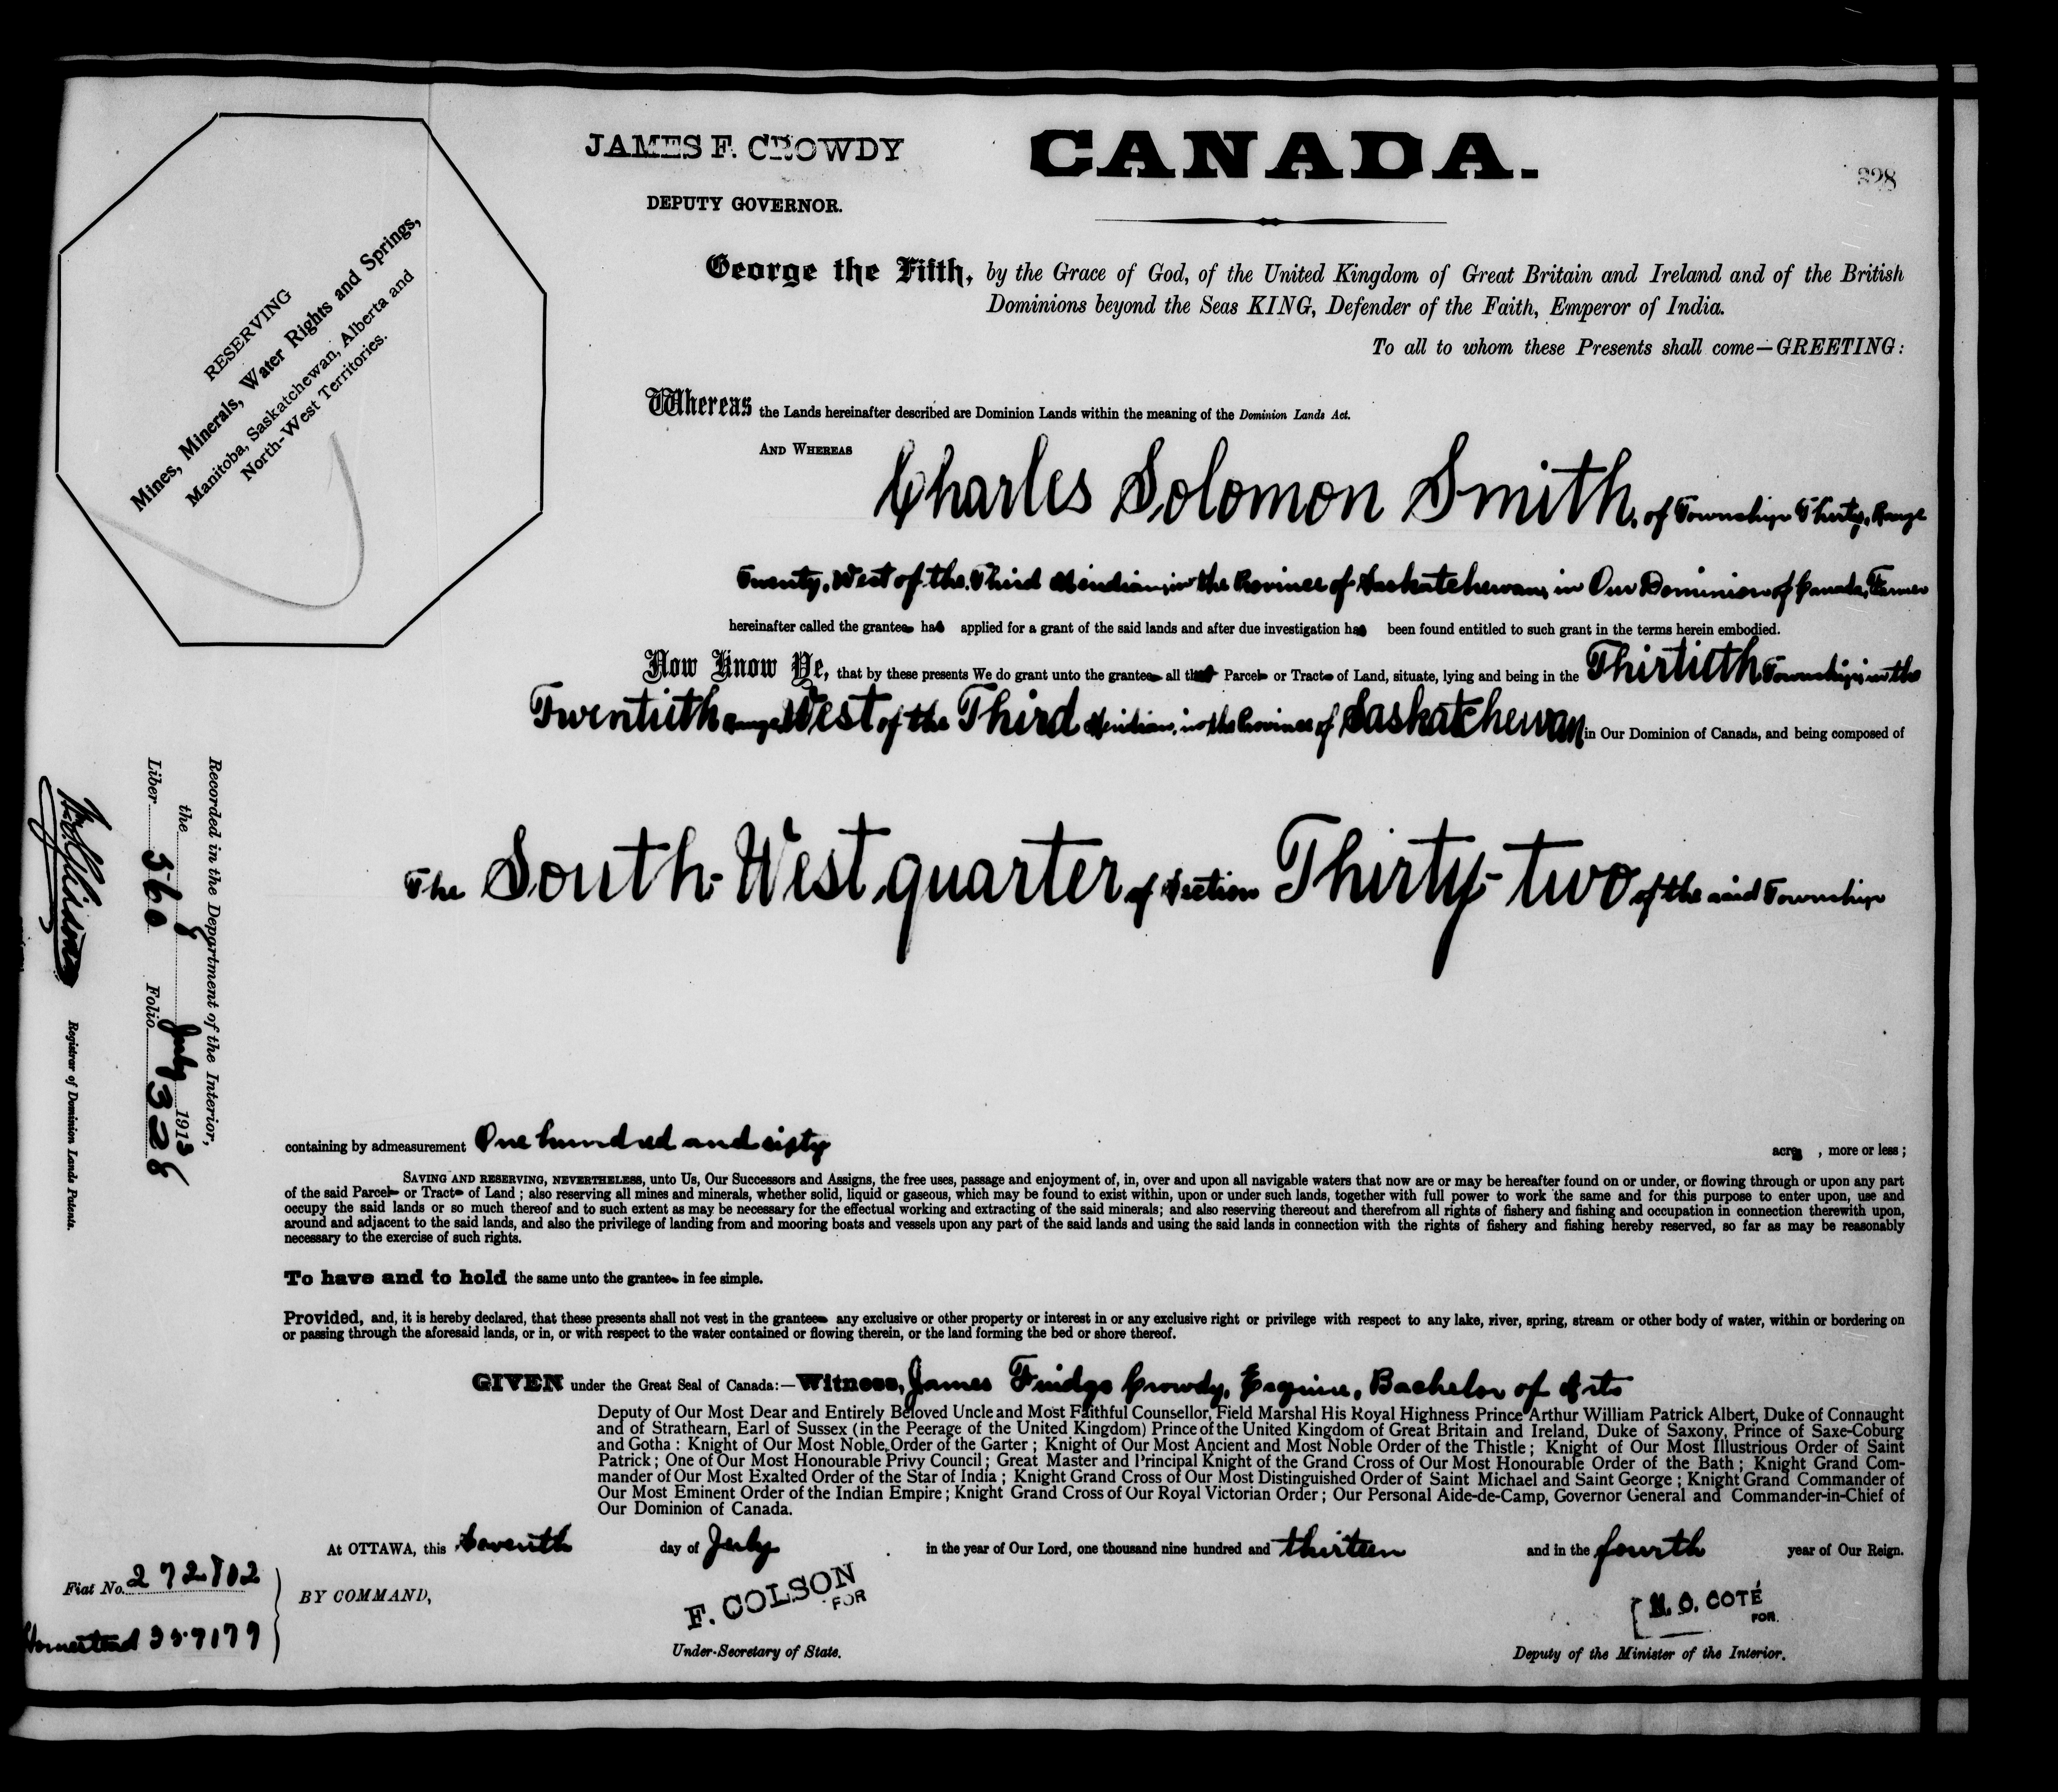 JAMES F. CROWDY
DEPUTY GOVERNOR.
CANADA.
328
RESERVING
Mines, Minerals, Water Rights and Springs,
Manitoba, Saskatchewan, Alberta and
North-West Territories.
George the Fifth, by the Grace of God, of the United Kingdom of Great Britain and Ireland and of the British
Dominions beyond the Seas KING, Defender of the Faith, Emperor of India.
To all to whom these Presents shall come—GREETING:
Whereas the Lands hereinafter described are Dominion Lands within the meaning of the Dominion Lands Act.
AND WHEREAS Charles Solomon Smith, of Township Thirty, Range
Twenty, West of the Third Meridian, in the Province of Saskatchewan, in Our Dominion of Canada, Farmer
hereinafter called the grantee has applied for a grant of the said lands and after due investigation has been found entitled to such grant in the terms herein embodied.
Now Know Ye, that by these presents We do grant unto the grantee all that Parcel or Tract of Land, situate, lying and being in the Thirtieth Township, in the
Twentieth range West of the Third Meridian, in the Province of Saskatchewan in Our Dominion of Canada, and being composed of
The South-West quarter of Section Thirty-two of the said Township
containing by admeasurement One hundred and sixty acres, more or less;
SAVING AND RESERVING, NEVERTHELESS, unto Us, Our Successors and Assigns, the free uses, passage and enjoyment of, in, over and upon all navigable waters that now are or may be hereafter found on or under, or flowing through or upon any part
of the said Parcel or Tract of Land; also reserving all mines and minerals, whether solid, liquid or gaseous, which may be found to exist within, upon or under such lands, together with full power to work the same and for this purpose to enter upon, use and
occupy the said lands or so much thereof and to such extent as may be necessary for the effectual working and extracting of the said minerals; and also reserving thereout and therefrom all rights of fishery and fishing and occupation in connection therewith upon,
around and adjacent to the said lands, and also the privilege of landing from and mooring boats and vessels upon any part of the said lands and using the said lands in connection with the rights of fishery and fishing hereby reserved, so far as may be reasonably
necessary to the exercise of such rights.
To have and to hold the same unto the grantee in fee simple.
Provided, and, it is hereby declared, that these presents shall not vest in the grantee any exclusive or other property or interest in or any exclusive right or privilege with respect to any lake, river, spring, stream or other body of water, within or bordering on
or passing through the aforesaid lands, or in, or with respect to the water contained or flowing therein, or the land forming the bed or shore thereof.
GIVEN under the Great Seal of Canada:—Witness, James Crowdy, Esquire, Bachelor of Arts
Deputy of Our Most Dear and Entirely Beloved Uncle and Most Faithful Counsellor, Field Marshal His Royal Highness Prince Arthur William Patrick Albert, Duke of Connaught
and of Strathearn, Earl of Sussex (in the Peerage of the United Kingdom) Prince of the United Kingdom of Great Britain and Ireland, Duke of Saxony, Prince of Saxe-Coburg
and Gotha: Knight of Our Most Noble Order of the Garter; Knight of Our Most Ancient and Most Noble Order of the Thistle; Knight of Our Most Illustrious Order of Saint
Patrick; One of Our Most Honourable Privy Council; Great Master and Principal Knight of the Grand Cross of Our Most Honourable Order of the Bath; Knight Grand Com-
mander of Our Most Exalted Order of the Star of India; Knight Grand Cross of Our Most Distinguished Order of Saint Michael and Saint George; Knight Grand Commander of
Our Most Eminent Order of the Indian Empire; Knight Grand Cross of Our Royal Victorian Order; Our Personal Aide-de-Camp, Governor General and Commander-in-Chief of
Our Dominion of Canada.
At OTTAWA, this Seventh day of July in the year of Our Lord, one thousand nine hundred and thirteen and in the fourth year of Our Reign.
Fiat No. 272802
BY COMMAND,
Homestead
F. COLSON
FOR
Under-Secretary of State.
N. O. COTÉ
FOR.
Deputy of the Minister of the Interior.
Recorded in the Department of the Interior,
the 8 July 1913
Liber 360 Folio 328
Registrar of Dominion Lands Patents.